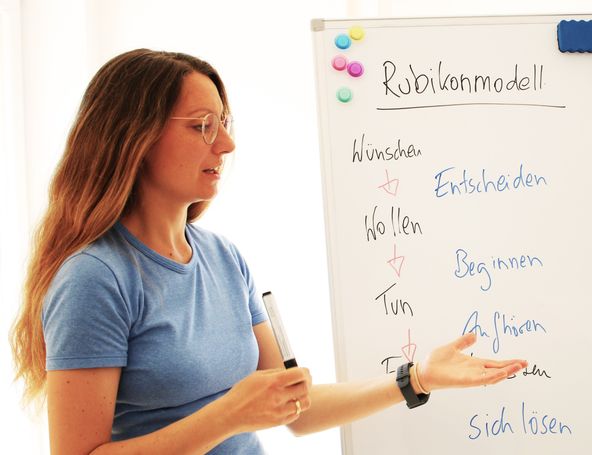 Rubikonmodell
Wünschen
Entscheiden
Wollen
Beginnen
Tun
Aufhören
sich lösen